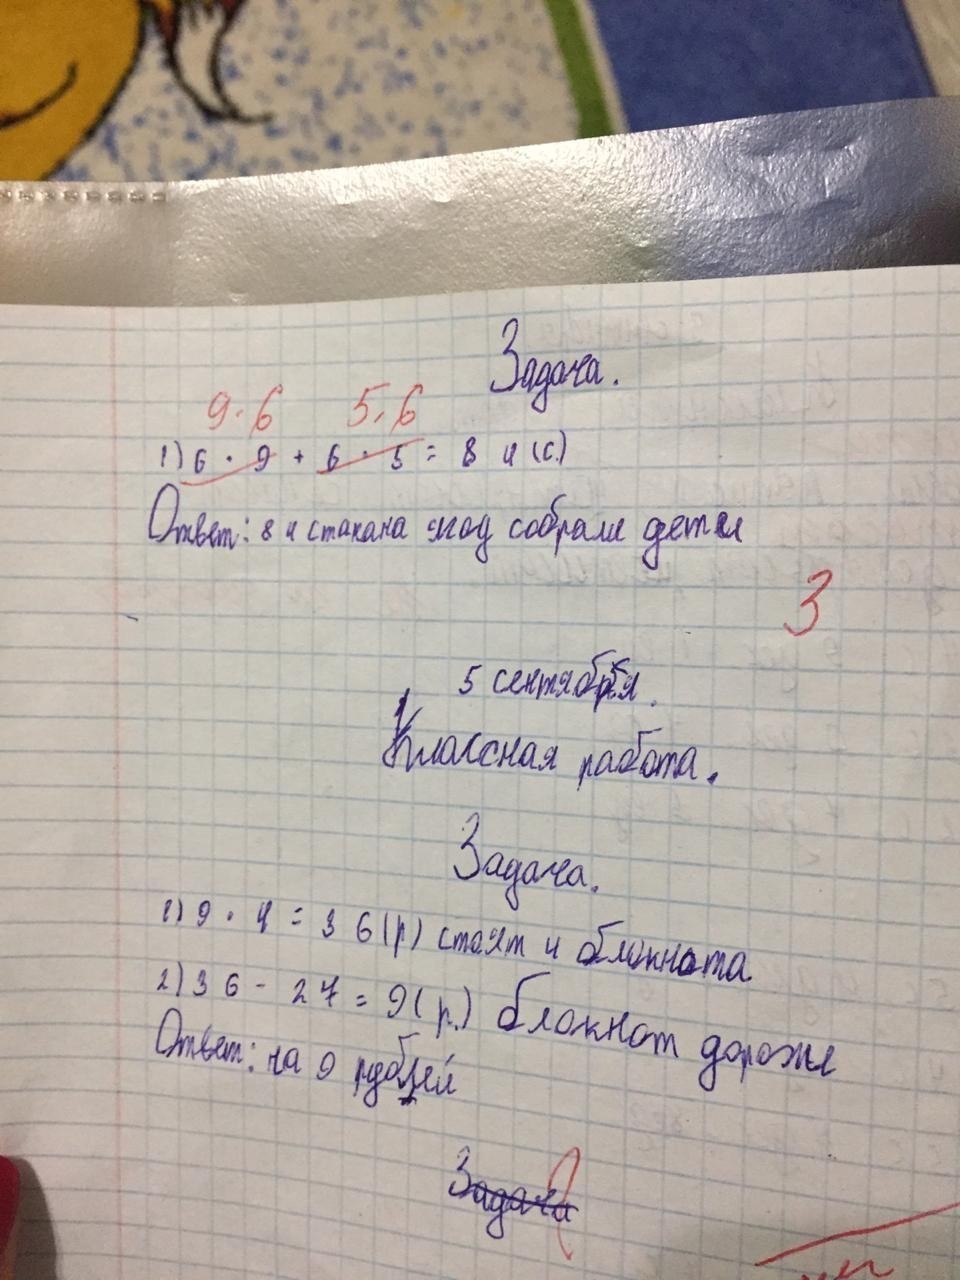 Задача.
9·6 5·6
1) 6 · 9 + 6 · 5 = 8 4 (с.)
Ответ: 8 4 стакана ягод собрали дети
3
5 сентября.
Классная работа.
Задача.
1) 9 · 4 = 3 6 (р) стоят 4 блокнота
2) 3 6 - 2 7 = 9 (р.) блокнот дороже
Ответ: на 9 рублей
Задача